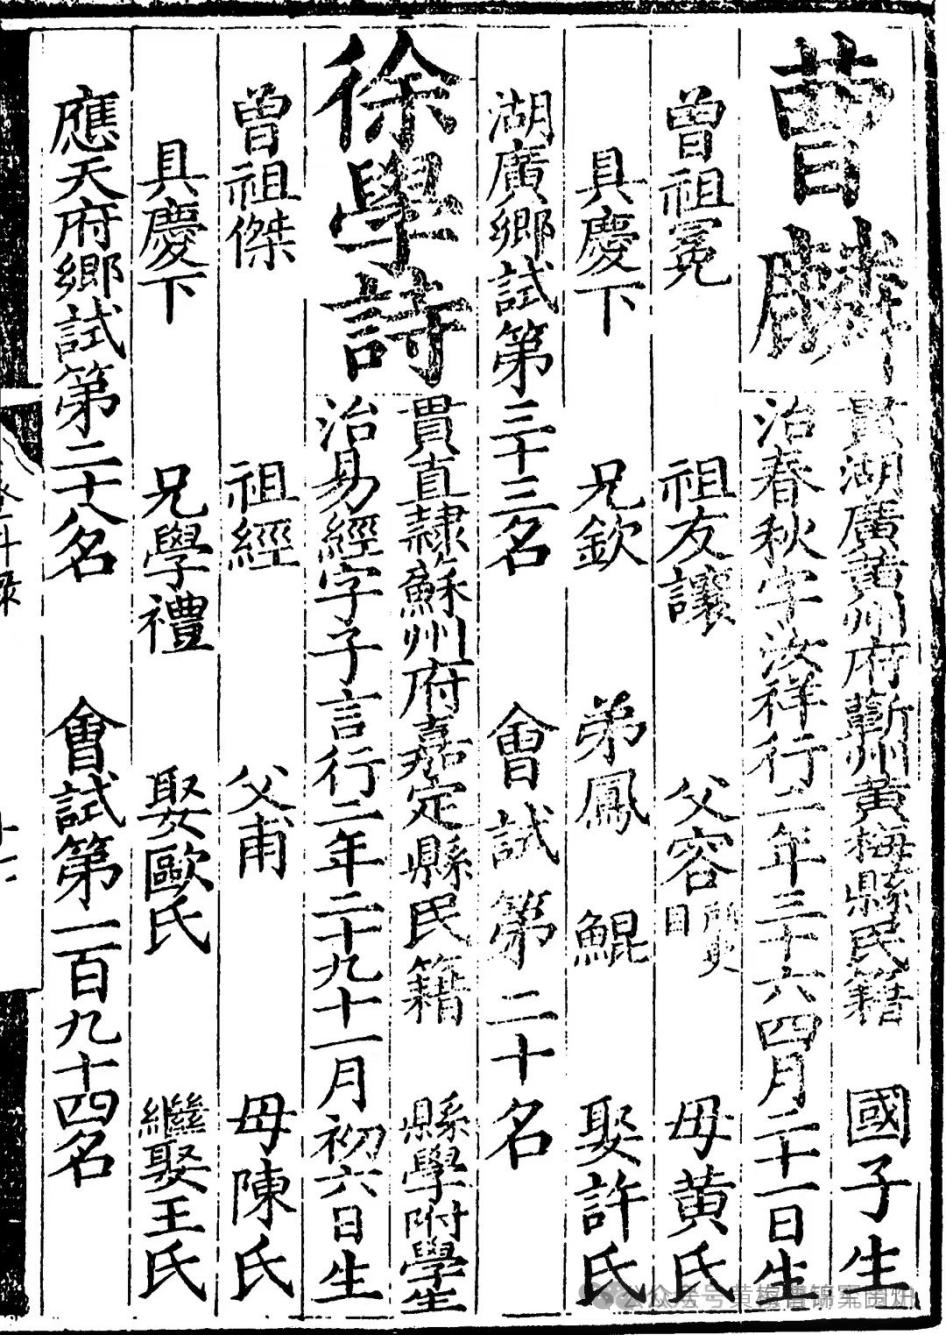 曹麟
貫湖廣黄州府蘄州黄梅縣民籍 國子生
治春秋字汝祥行二年三十六四月二十一日生
曾祖冕 祖友讓 父容 母黄氏
具慶下 兄欽 弟鳳 鯤 娶許氏
湖廣鄉試第三十三名 會試第二十名
徐學詩
貫直隷蘇州府嘉定縣民籍 縣學附學生
治易經字子言行二年二十九十一月初六日生
曾祖傑 祖經 父甫 母陳氏
具慶下 兄學禮 娶歐氏 繼娶王氏
應天府鄉試第二十八名 會試第一百九十四名